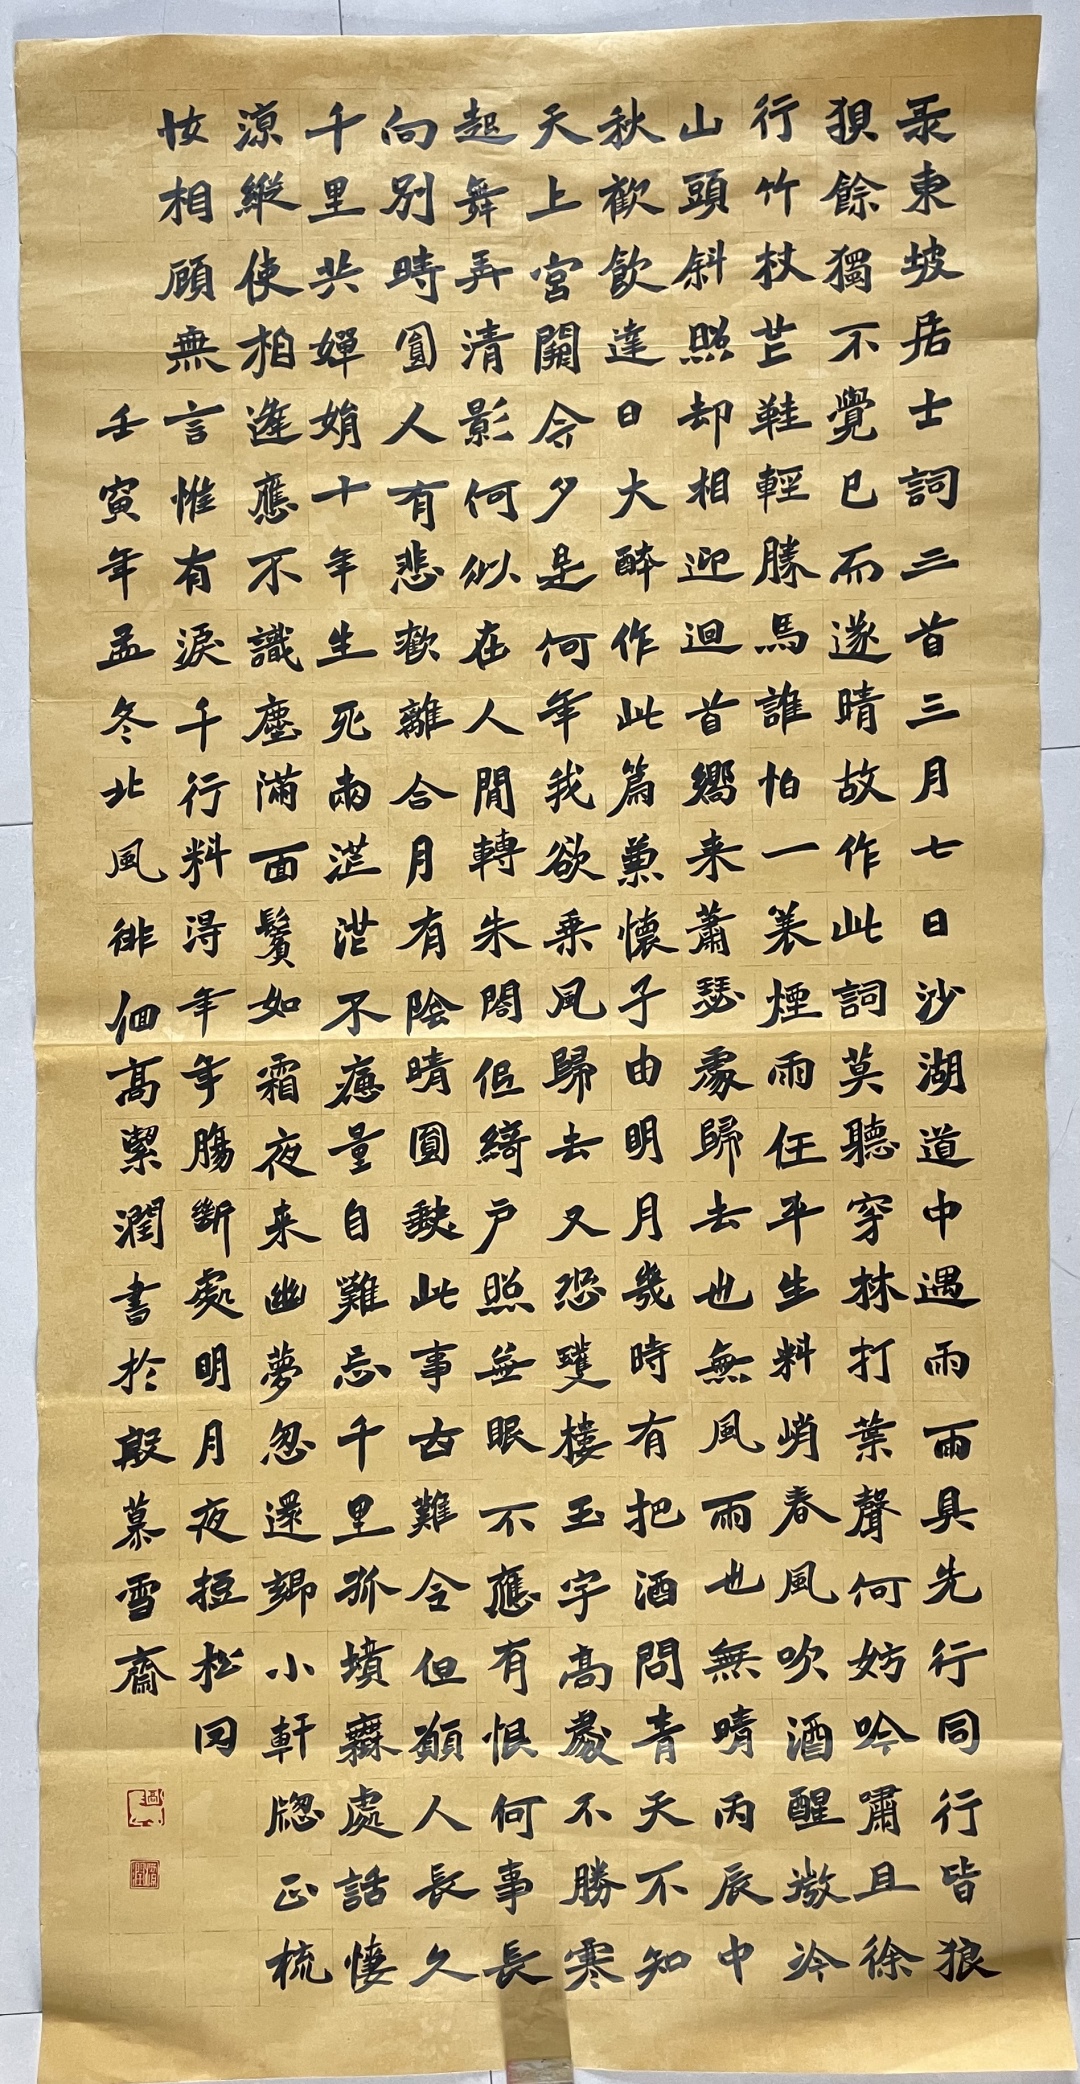 彔東坡居士詞三首三月七日沙湖道中遇雨雨具先行同行皆狼
狽餘獨不覺已而遂晴故作此詞莫聽穿林打葉聲何妨吟嘯且徐
行竹杖芒鞋輕勝馬誰怕一蓑煙雨任平生料峭春風吹酒醒微冷
山頭斜照却相迎迴首嚮来蕭瑟處歸去也無風雨也無晴丙辰中
秋歡飲達日大醉作此篇兼懷子由明月幾時有把酒問青天不知
天上宮闕今夕是何年我欲乗風歸去又恐瓊樓玉宇高處不勝寒
起舞弄清影何似在人間轉朱閣低綺户照無眠不應有恨何事長
向別時圓人有悲歡離合月有陰晴圓缺此事古難全但願人長久
千里共嬋娟十年生死兩茫茫不思量自難忘千里孤墳無處話悽
涼縱使相逢應不識塵滿面鬢如霜夜来幽夢忽還鄉小軒窗正梳
妝相顧無言惟有淚千行料得年年腸斷處明月夜短松冈
壬寅年孟冬北風徘徊高潔潤書於殷慕雪齋